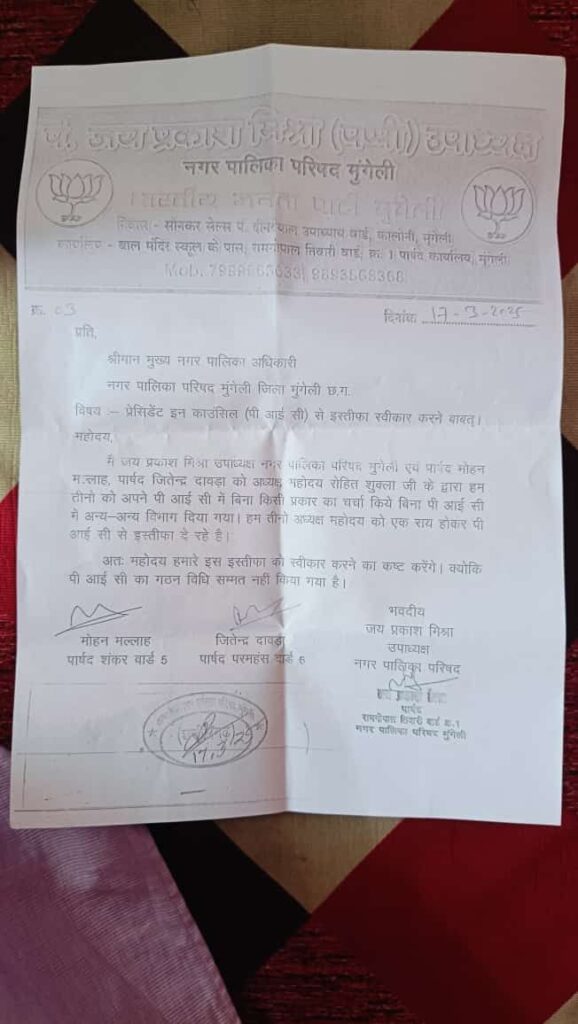 पं. जय प्रकाश मिश्रा (पप्पी) उपाध्यक्ष
नगर पालिका परिषद मुंगेली
भारतीय जनता पार्टी मुंगेली
निवास - सोनकर सेल्स पं. दीनदयाल उपाध्याय वार्ड, कालोनी, मुंगेली
कार्यालय - बाल मंदिर स्कूल के पास, रामगोपाल तिवारी वार्ड, क्र. 1 पार्षद कार्यालय, मुंगेली
Mob.
क्र. 03
दिनांक 17-3-2025
प्रति,
श्रीमान मुख्य नगर पालिका अधिकारी
नगर पालिका परिषद मुंगेली जिला मुंगेली छ.ग.
विषय :– प्रेसिडेंट इन काउसिल (पी आई सी) से इस्तीफा स्वीकार करने बाबत्।
महोदय,
मै जय प्रकाश मिश्रा उपाध्यक्ष नगर पालिका परिषद मुंगेली एवं पार्षद मोहन
मल्लाह, पार्षद जितेन्द्र दावड़ा को अध्यक्ष महोदय रोहित शुक्ला जी के द्वारा हम
तीनो को अपने पी आई सी में बिना किसी प्रकार का चर्चा किये बिना पी आई सी
में अन्य-अन्य विभाग दिया गया। हम तीनो अध्यक्ष महोदय को एक राय होकर पी
आई सी से इस्तीफा दे रहे है।
अतः महोदय हमारे इस इस्तीफा को स्वीकार करने का कष्ट करेंगे। क्योकि
पी आई सी का गठन विधि सम्मत नहीं किया गया है।
भवदीय
मोहन मल्लाह जितेन्द्र दावड़ा जय प्रकाश मिश्रा
पार्षद शंकर वार्ड 5 पार्षद परमहंस वार्ड 6 उपाध्यक्ष
नगर पालिका परिषद
पार्षद
रामगोपाल तिवारी वार्ड क्र.-1
नगर पालिका परिषद मुंगेली
17.3/25